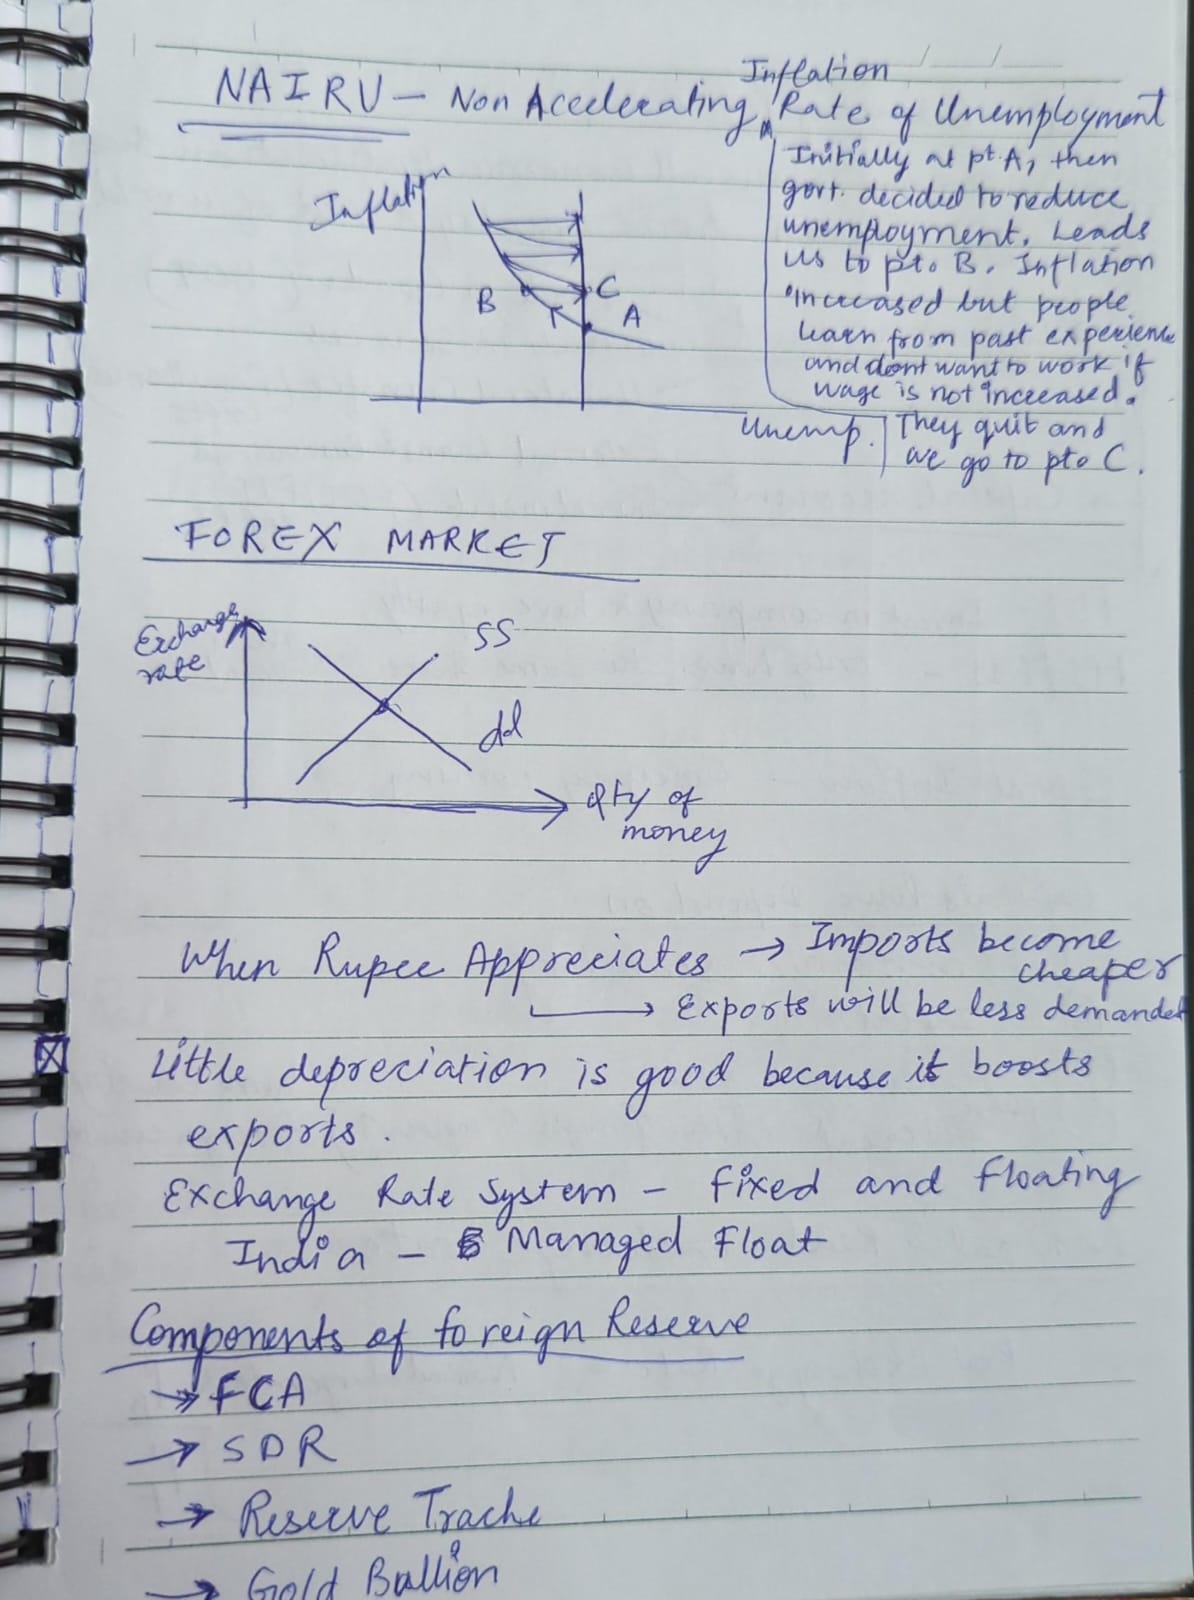 Inflation
NAIRU - Non Accelerating Rate of Unemployment
Initially at pt. A, then
govt. decided to reduce
unemployment. Leads
us to pt. B. Inflation
increased but people
learn from past experience
and dont want to work if
wage is not increased.
They quit and
we go to pt. C.
Inflation
B
C
A
Unemp.
FOREX MARKET
Exchange
rate
SS
dd
Qty of
money
When Rupee Appreciates → Imports become
cheaper
→ Exports will be less demanded
Little depreciation is good because it boosts
exports.
Exchange Rate System - Fixed and Floating
India - Managed Float
Components of foreign Reserve
→ FCA
→ SDR
→ Reserve Trache
→ Gold Bullion